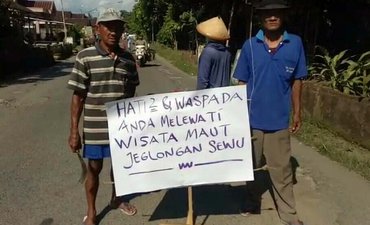 HATI² & WASPADA
ANDA MELEWATI
WISATA MAUT
JEGLONGAN SEWU